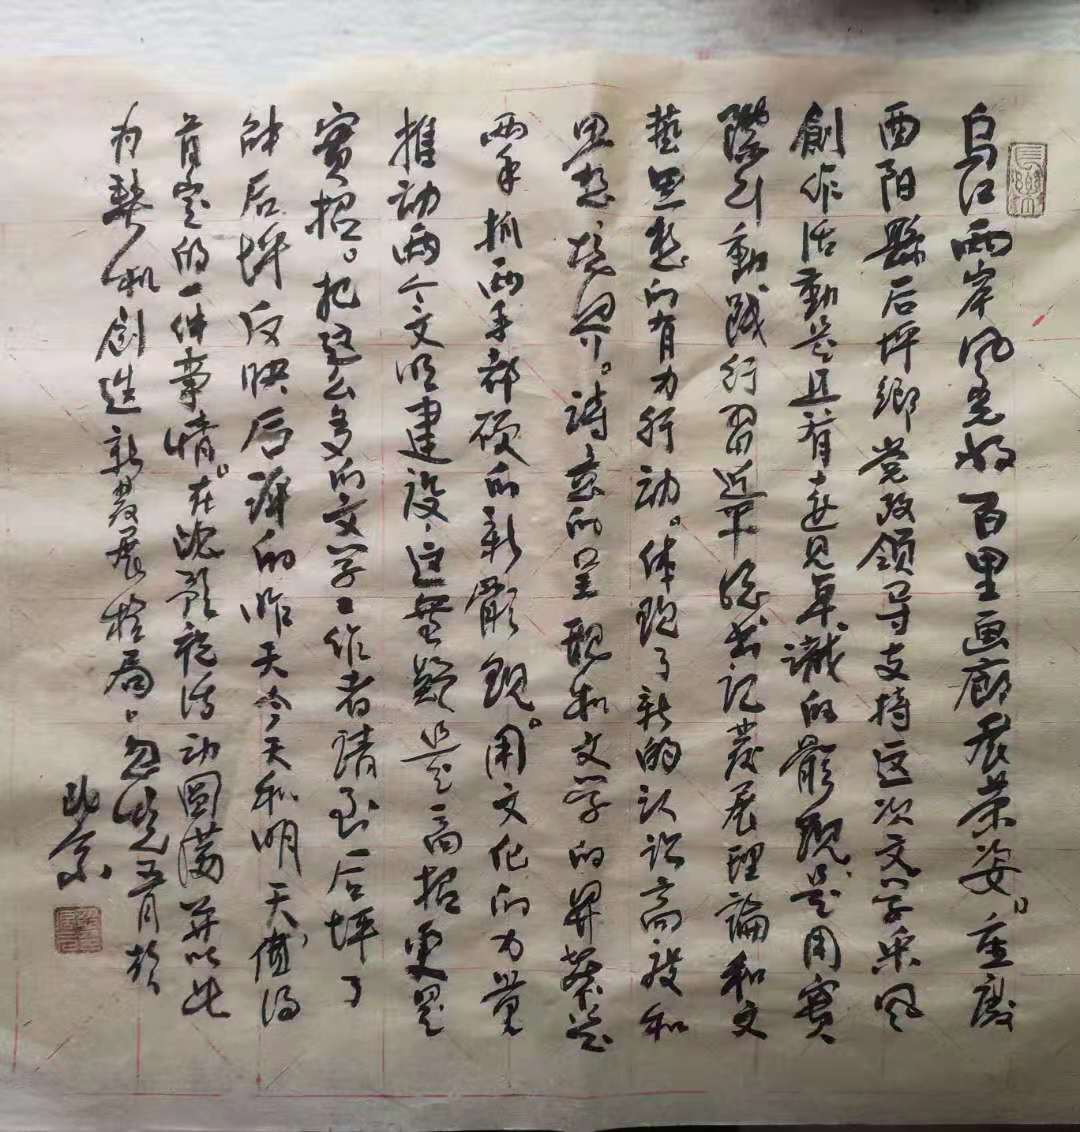 乌江两岸风光好百里画廊展荣姿。重庆
酉阳县后坪鄉党政领导支持这次文学采风
創作活動是具有远见卓識的體现是用實
際行動踐行習近平總书记發展理論和文
藝思想的有力行动。体现了新的认识高度和
思想境界。詩意的呈現和文学的昇華是
两手抓两手都硬的新體现。用文化的力量
推动两个文明建设，这無疑是高招更是
實招。把这么多的文学工作者請到后坪了
解后坪反映后坪的昨天今天和明天值得
肯定的一件事情。在祝活动圓满并以此
为契机創造新發展格局。五月於
北京